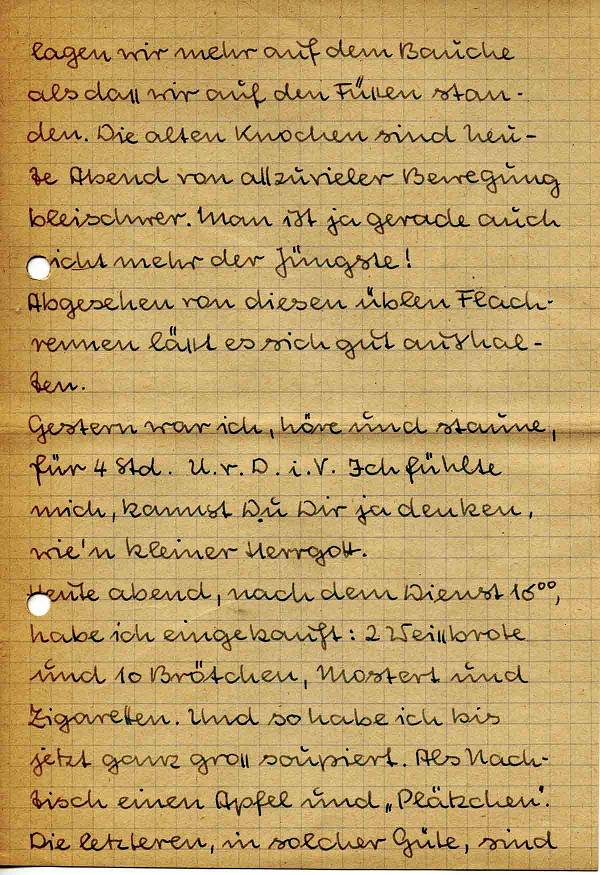 lagen wir mehr auf dem Bauche
als dass wir auf den Füssen stan-
den. Die alten Knochen sind heu-
te Abend von allzuvieler Bewegung
bleischwer. Man ist ja gerade auch
nicht mehr der Jüngste!
Abgesehen von diesen üblen Flach-
rennen lässt es sich gut aushal-
ten.
Gestern war ich, höre und staune,
für 4 Std. U. v. D. i. V. Ich fühlte
mich, kannst Du Dir ja denken,
wie'n kleiner Herrgott.
Heute abend, nach dem Dienst 16⁰⁰,
habe ich eingekauft: 2 Weissbrote
und 10 Brötchen, Mostert und
Zigaretten. Und so habe ich bis
jetzt ganz gross soupiert. Als Nach-
tisch einen Apfel und „Plätzchen".
Die letzteren, in solcher Güte, sind